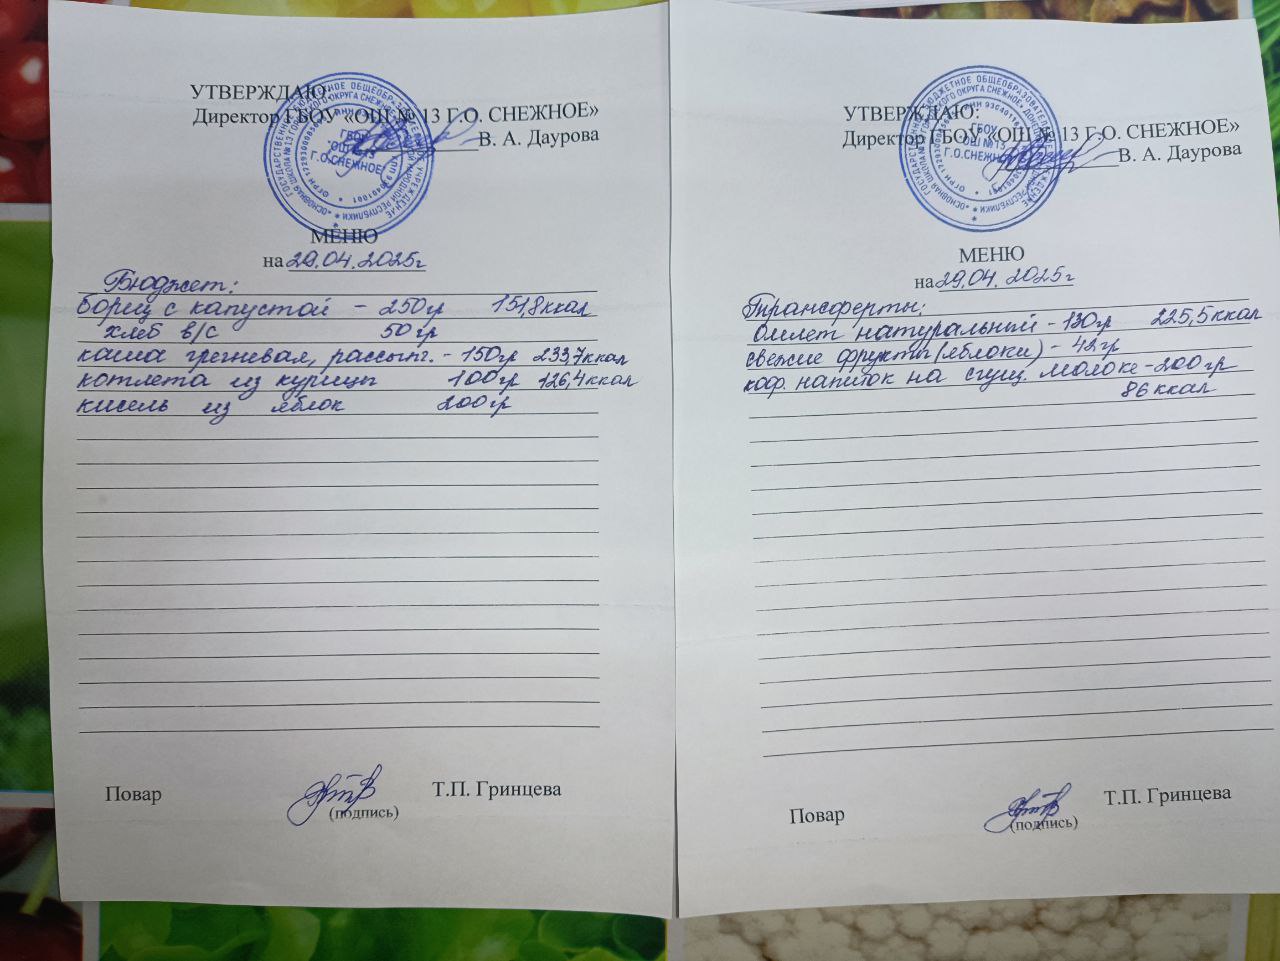 УТВЕРЖДАЮ:
Директор ГБОУ «ОШ № 13 Г.О. СНЕЖНОЕ»
В. А. Даурова
ГБОУ
"ОШ № 13
Г.О.СНЕЖНОЕ"
МЕНЮ
на 29.04.2025г
Бюджет:
борщ с капустой - 250гр 151,8ккал
хлеб в/с 50гр
каша гречневая, рассып. - 150гр 233,7ккал
котлета из курицы 100гр 126,4ккал
кисель из яблок 200гр
Повар Т.П. Гринцева
(подпись)
УТВЕРЖДАЮ:
Директор ГБОУ «ОШ № 13 Г.О. СНЕЖНОЕ»
В. А. Даурова
ГБОУ
"ОШ № 13
Г.О.СНЕЖНОЕ"
МЕНЮ
на 29.04. 2025г
Трансферты:
Омлет натуральный - 130гр 225,5ккал
свежие фрукты (яблоки) - 42гр
коф. напиток на сгущ. молоке - 200 гр
86 ккал
Повар Т.П. Гринцева
(подпись)